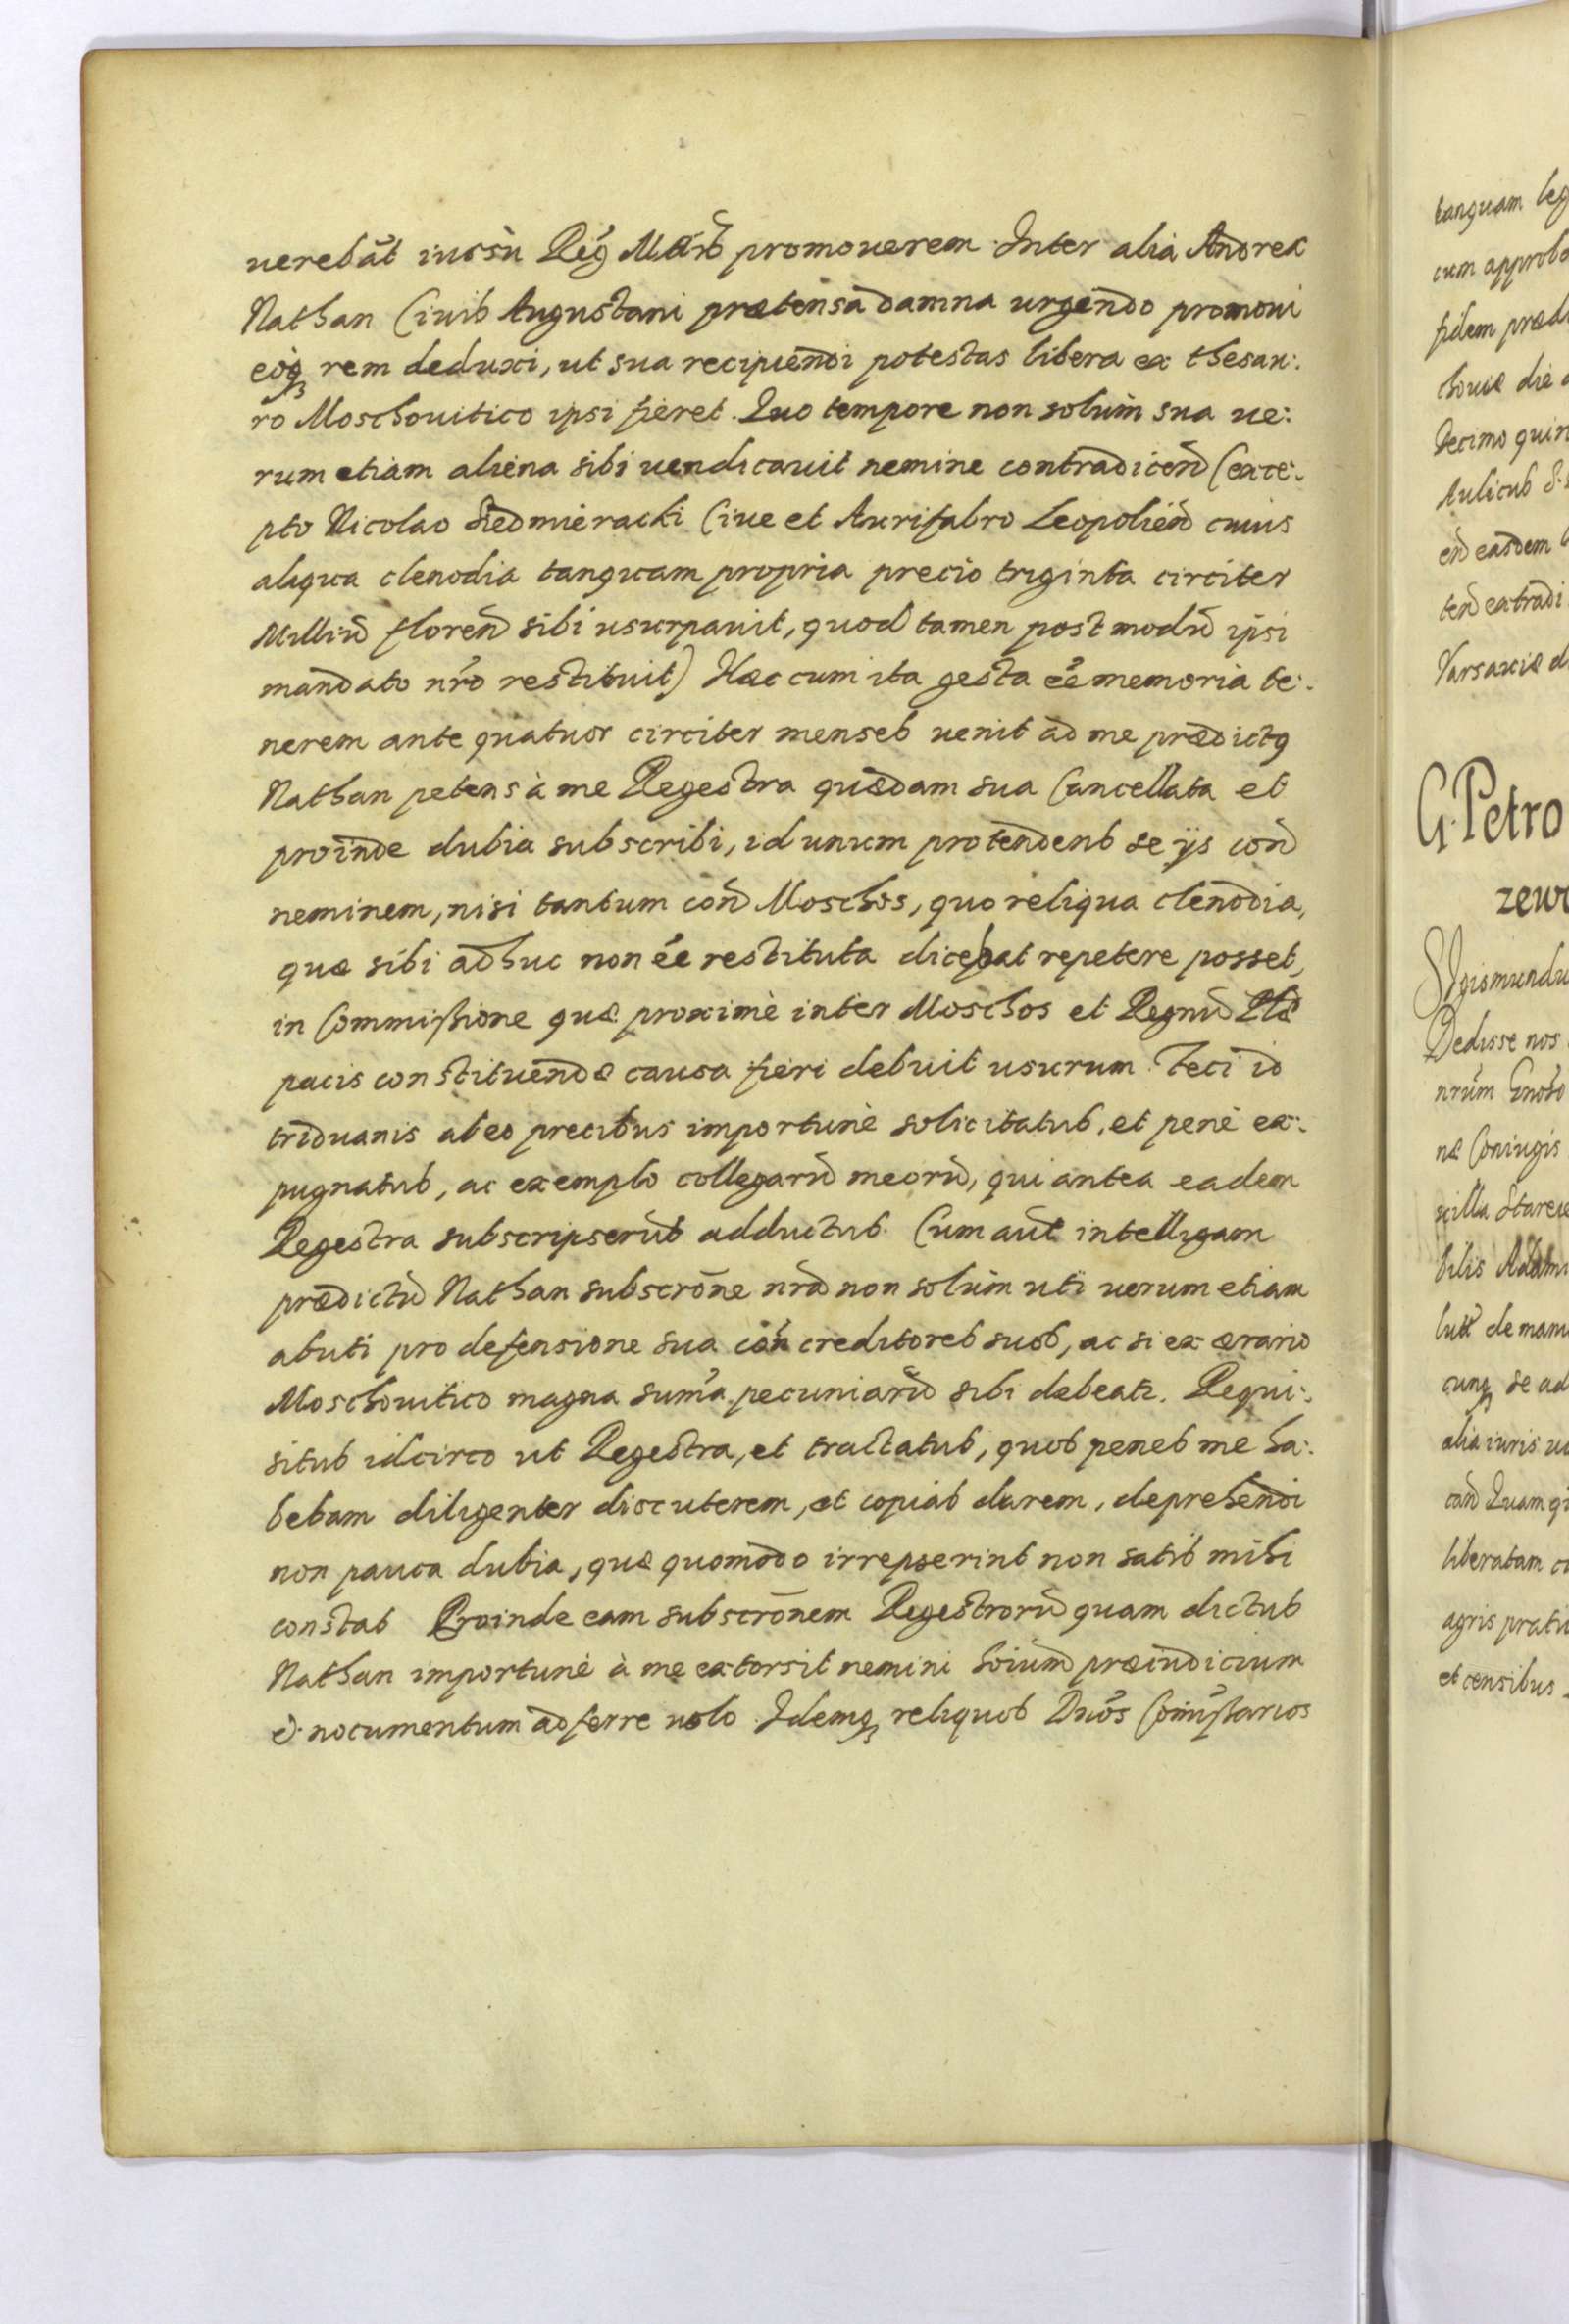 uerebāt iussu Reg Mattis promouerem Inter alia Andrea
Nathan Ciuis Augustani prætensa damna urgendo promoui
eoq rem deduxi, ut sua recipiendi potestas libera ex thesau:
ro Moschouitico ipsi fieret. Quo tempore non solum sua ue:
rum etiam aliena sibi uendicauit nemine contradicen (exce:
pto Nicolao Siedmieracki Ciue et Aurifabro Leopolien cuius
aliqua clenodia tanquam propria precio triginta circiter
Milliū floren sibi usurpauit, quod tamen post modū ipsi
mandato nr̃o restituit) Hæc cum ita gesta ẽe memoria te:
nerem ante quatuor circiter menses uenit ad me prædictq
Nathan petens à me Regestra quædam sua Cancellata et
proinde dubia subscribi, id unum protendens se ijs con
neminem, nisi tantum con Moschos, quo reliqua clenodia,
quæ sibi adhuc non ẽe restituta dicebat repetere posset,
in Commissione quæ proxime inter Moschos et Regnū Pl̃æ
pacis constituendæ causa fieri debuit usurum. Feci id
triduanis ab eo precibus importunè solicitatus, et penè ex:
pugnatus, ac exemplo collegarū meorū, qui antea eadem
Regestra subscripserūt adductus. Cum aut̃ intelligam
prædictū Nathan subscrōne nrā non solùm uti uerum etiam
abuti pro defensione sua con creditores suos, ac si ex ærario
Moschouitico magna sum̃a pecuniarū sibi debeatr. Requi:
situs idcirco ut Regestra, et tractatus, quos penes me ha:
bebam diligenter discuterem, et copias darem, deprehendi
non pauca dubia, quæ quomodo irrepserint non satis mihi
constat Proinde eam subscrōnem Regestrorū quam dictus
Nathan importunè à me extorsit nemini hoium præiudicium
et nocumentum adferre uolo. Idemq reliquos Dños Com̃issarios
tanquam leg
cum approba
fidem prædi
chouiæ die
Decimo quin
Aulicus S.
en easdem
ten extradi
Varsauiæ d
G. Petro
zew
Sigismundu
Dedisse nos
nrum Gnoso
næ Coniugis
uilla Starew
bilis Adam
de manu
cunq se ad
alia iuris u
can Quam q
liberatam c
agris pratis
et censibus